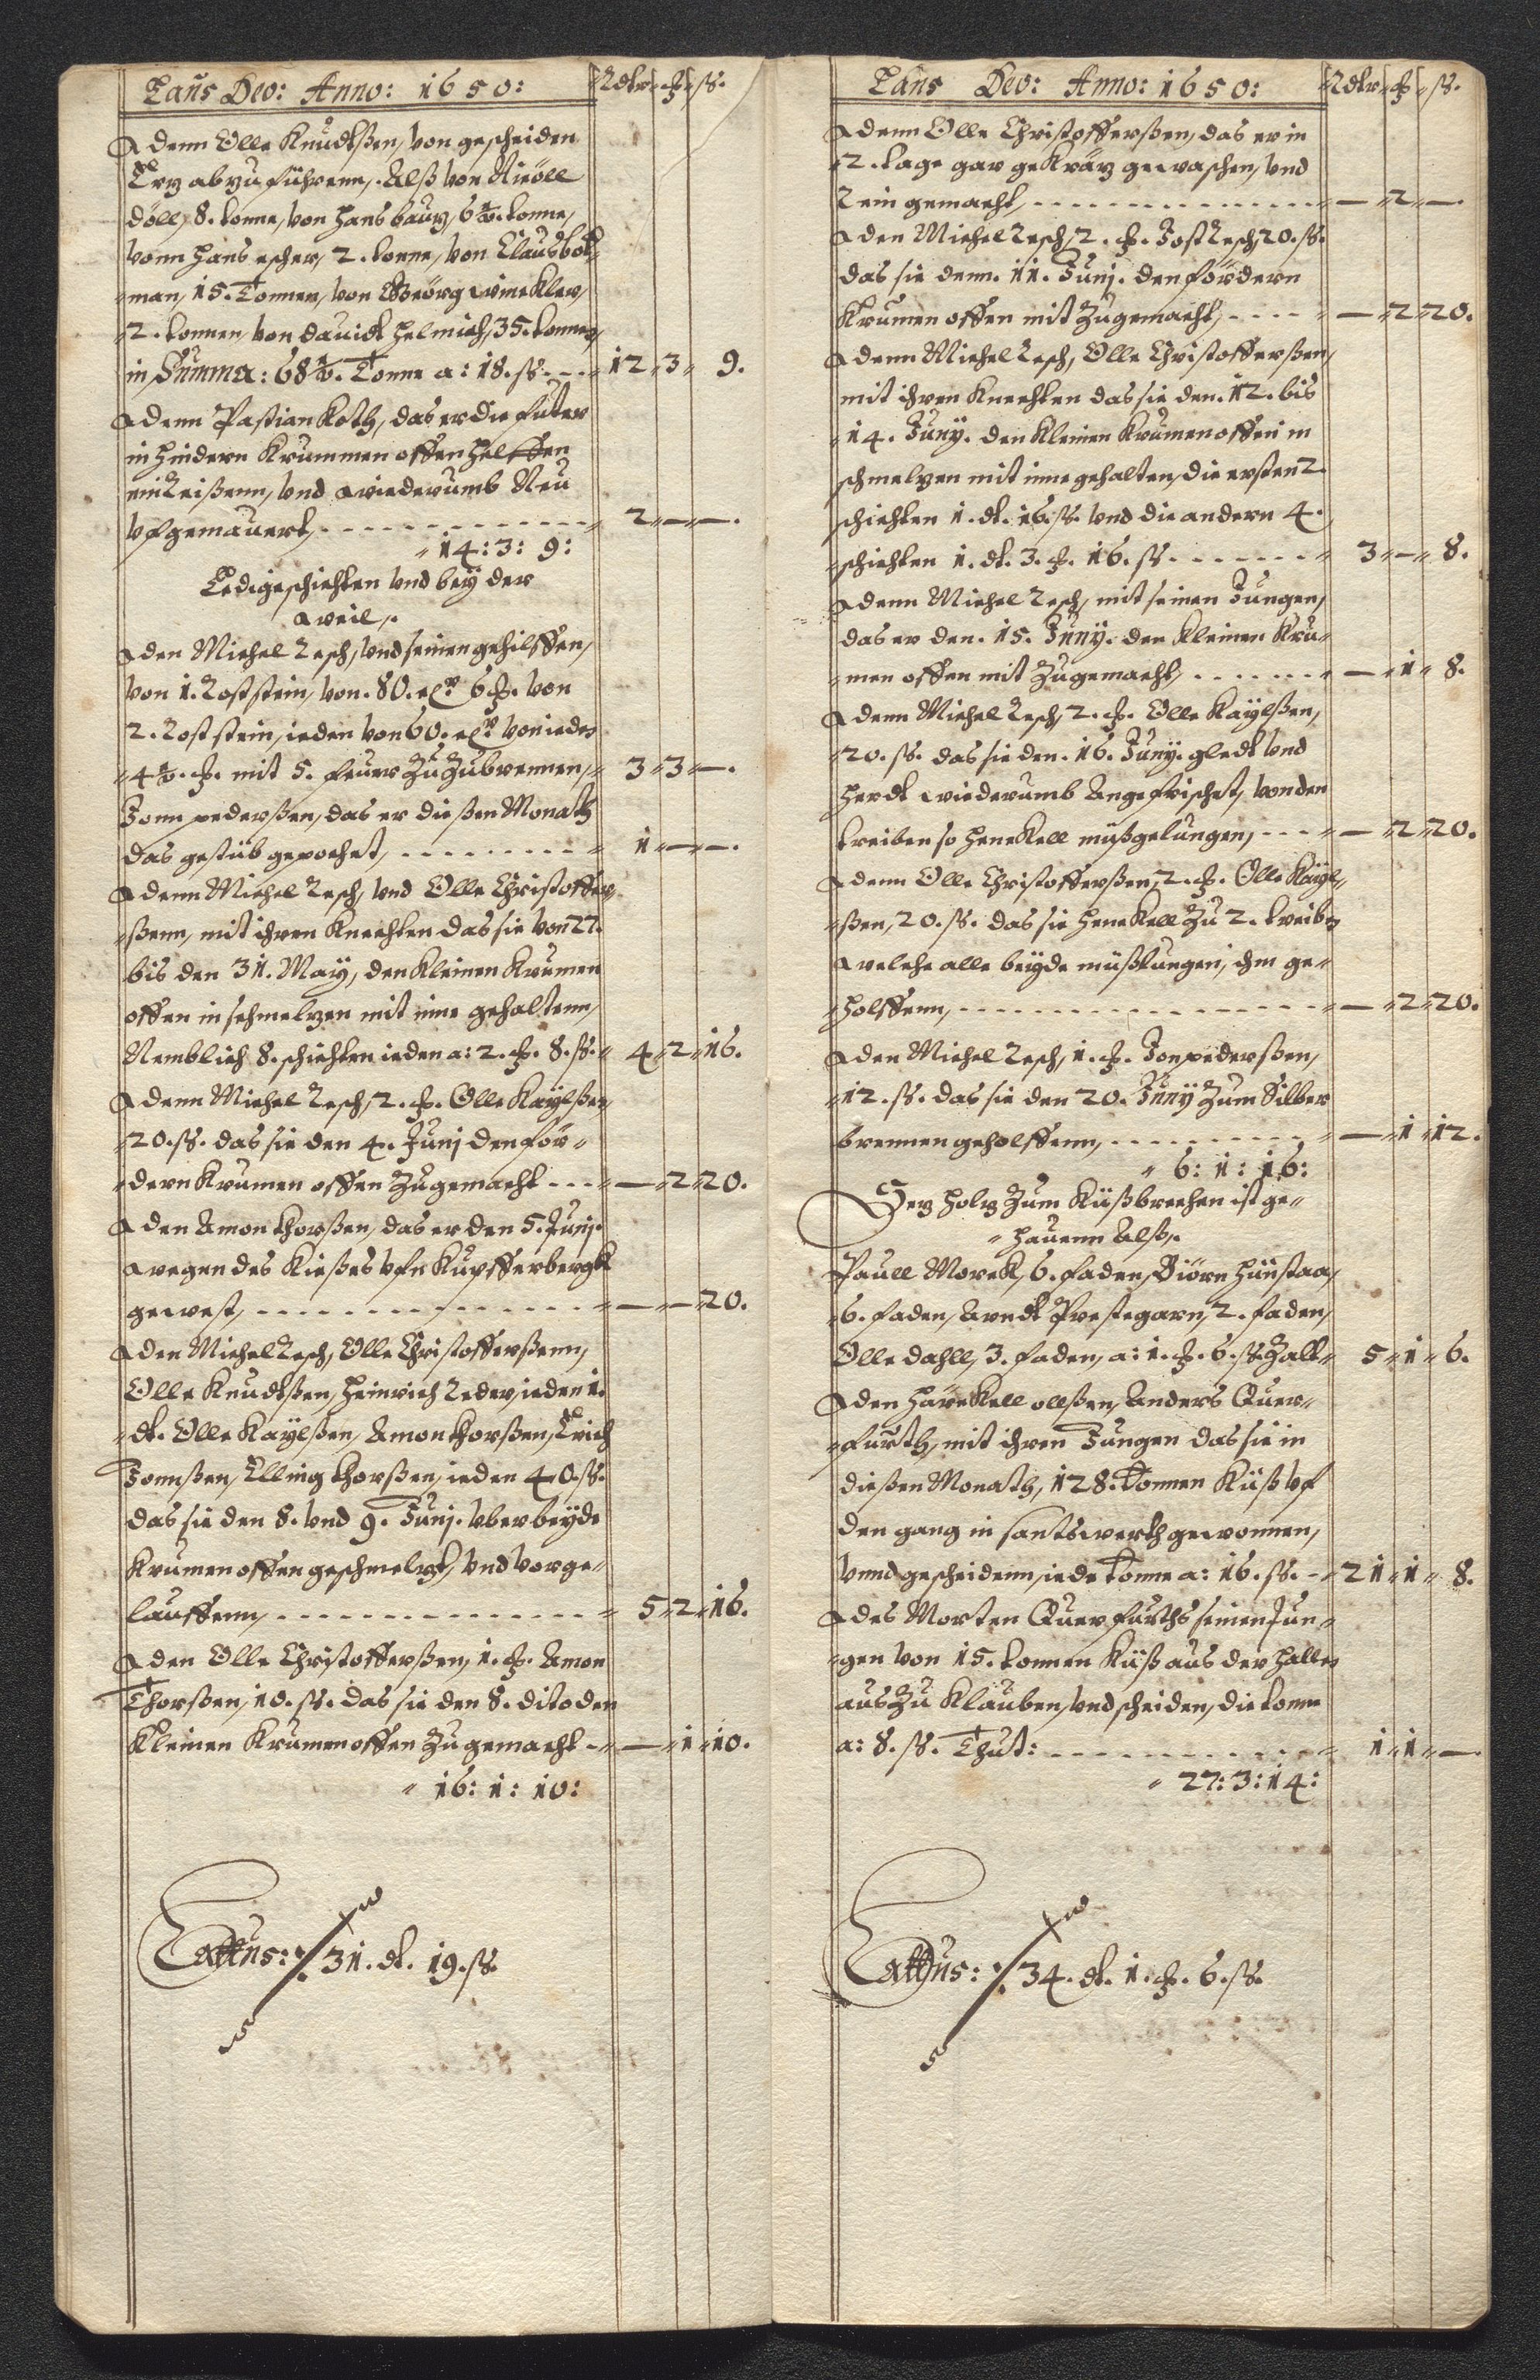 Laus Deo: Anno: 1650: Rdlr ß.
denn Olle Knudtßen, von gescheiden
Ertz abzuführenn, Alß von Nieöll
döll, 8. tonne, von Hans bauz, 6½. tonne,
vonn Hans escher, 2. tonne, von Claus bot„
„man, 15. Tonnen, von Geörg winckler,
2. tonnen von dauidt Helmich, 35. tonnen,
in Summa: 68½. Tonne a: 18. ß. 12 „ 3 „ 9.
denn Pastian Koth, das er die futer
in hindern Krummen offen helffen
ein Reißenn, vnd wiederumb Neu
vfgemauert, 2 „ — „ —.
„ 14: 3: 9:
Ledigeschichten vnd bey der
weil,
den Michel Resch, vnd seinen gehilffen,
von 1. Roststein, von. 80. 6 . von
2. Roststein, ieden von 60. von ieden
„4½. . mit 5. feuer Zu Zubrennen, 3 „ 3 „ —.
Jonn pederßen, das er dießen Monath
das gestüb gepochet, 1 „ — „ —.
denn Michel Resch, vnd Olle Christoffer„
„ßenn, mit ihren Knechten das sie von 27.
bis den 31. May, den Kleinen Krumen
offen in schmelzen mit inne gehaltenn,
Nemblich 8. schichten ieden a: 2. . 8. ß. 4 „ 2 „ 16.
denn Michel Resch, 2. . Olle Kaylßen
„20. ß. das sie den 4. Junj den för„
„dern Krumen offen Zugemacht — „ 2 „ 20.
den Amon thorßen, das er den 5. Junj.
wegen des Kießes vfn Kupfferbergk
gewest, — „ — „ 20.
den Michel Resch, Olle Christofferßenn,
Olle Knudtßen, Heinrich Reder, ieden 1.
„dt. Olle Kaylßen, Amon thorßen, Erich
Jonnßen, Elling thorßen, ieden 40. ß.
das sie den 8. vnd 9. Junj. vber beyde
Krumen offen geschmelzt, vnd vorge„
lauffenn, 5 „ 2 „ 16.
den Olle Christofferßen, 1. . Amon
Thorßen, 10. ß. das sie den 8. dito den
Kleinen Krumen offen Zugemacht — „ 1 „ 10.
„ 16: 1: 10:
Lattus: 31. dt. 19. ß.
Laus Deo: Anno: 1650: Rdlr ß.
denn Olle Christofferßen, das er in
2. tage gar ge Krätz gewaschen, vnd
Rein gemacht, — „ 2 „ —.
den Michel Resch, 2. . Jost Resch, 20. ß.
das sie denn. 11. Junj. den fördern
Krumen offen mit Zugemacht, — „ 2 „ 20.
denn Michel Resch, Olle Christofferßen,
mit ihren Knechten das sie den. 12. bis
„14. Juny. den Kleinen Krumen offen in
schmelzen mit inne gehalten, die ersten 2.
schichten 1. dt. 16. ß. vnd die andern 4.
„schichten 1. dt. 3. . 16. ß. 3 „ — „ 8.
denn Michel Resch, mit seinen Jungen,
das er den. 15. Juny. den Kleinen Kru„
„men offen mit Zugemacht, — „ 1 „ 8.
denn Michel Resch, 2. . Olle Kaylßen,
20. ß. das sie den. 16. Juny. gledt vnd
Herdt wiederumb Angefrischet, von den
treiben so Henckell mißgelungen, — „ 2 „ 20.
denn Olle Christofferßen, 2. . Olle Kayl„
„ßen, 20. ß. das sie Henckell Zu 2. treiben
welche alle beyde mißlungen, ihm ge„
„holffenn, — „ 2 „ 20.
den Michel Resch, 1. . Jon pederßen,
„12. ß. das sie den 20. Juny Zum Silber
brennen geholffenn, — „ 1 „ 12.
„ 6: 1: 16:
Setz Holz Zum Kißbrechen ist ge„
„hauenn Alß,
Pauell Morck, 6. faden, Biörn Hünstaa,
„6. faden, Arndt Prestegarn, 2. faden,
Olle dahll, 3. faden, a: 1. . 6. ß. Zalt 5 „ 1 „ 6.
den Harckell ollßen, Anders Quer„
„furth, mit ihren Jungen das sie in
dießen Monath, 128. Tonnen Kiß vf
den gang in santswerth gewonnen,
vnnd gescheidenn, iede Tonne a: 16. ß. 21 „ 1 „ 8.
des Morten Querfurths seinen Jun„
„gen von 15. tonnen Kiß aus der Halten
aus Zu Klauben, vnd scheiden, die tonne
a: 8. ß. Thut: 1 „ 1 „ —.
„ 27: 3: 14:
Lattus: 34. dt. 1. . 6. ß.